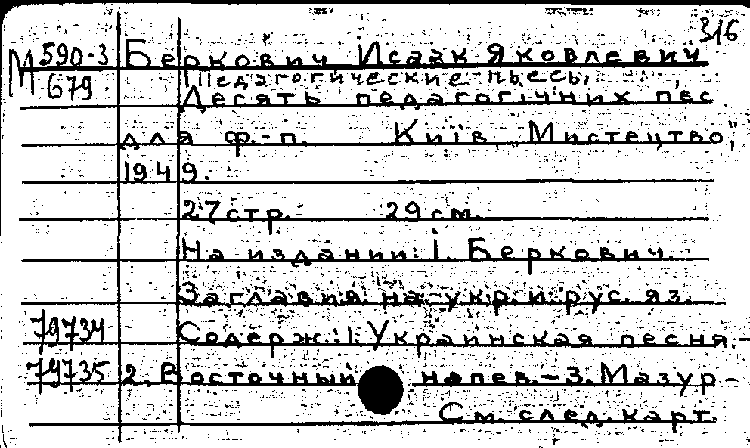 316
М 590-3 Беркович Исаак Яковлевич
679 Педагогические пьесы
Десять педагогічних пєс
для ф.-п. Київ „Мистецтво",
1949.
27 стр. 29 см.
На издании: І. Беркович.
Заглавия на укр. и рус. яз.
79734 Содерж.: 1. Украинская песня.-
79735 2. Восточный напев.-3. Мазур-
См. след. карт.